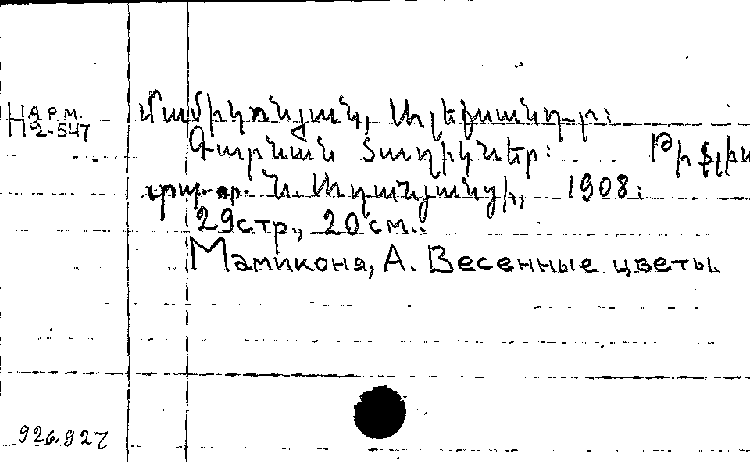 АРМ.
Н 2-547
Մամիկոնյան, Ալեքսանդր:
Գարնան ծաղիկներ: Թիֆլիս
տպար. Ն. Աղանյանցի, 1908:
29стр., 20см.
Мамиконя, А. Весенные цветы.
926.927